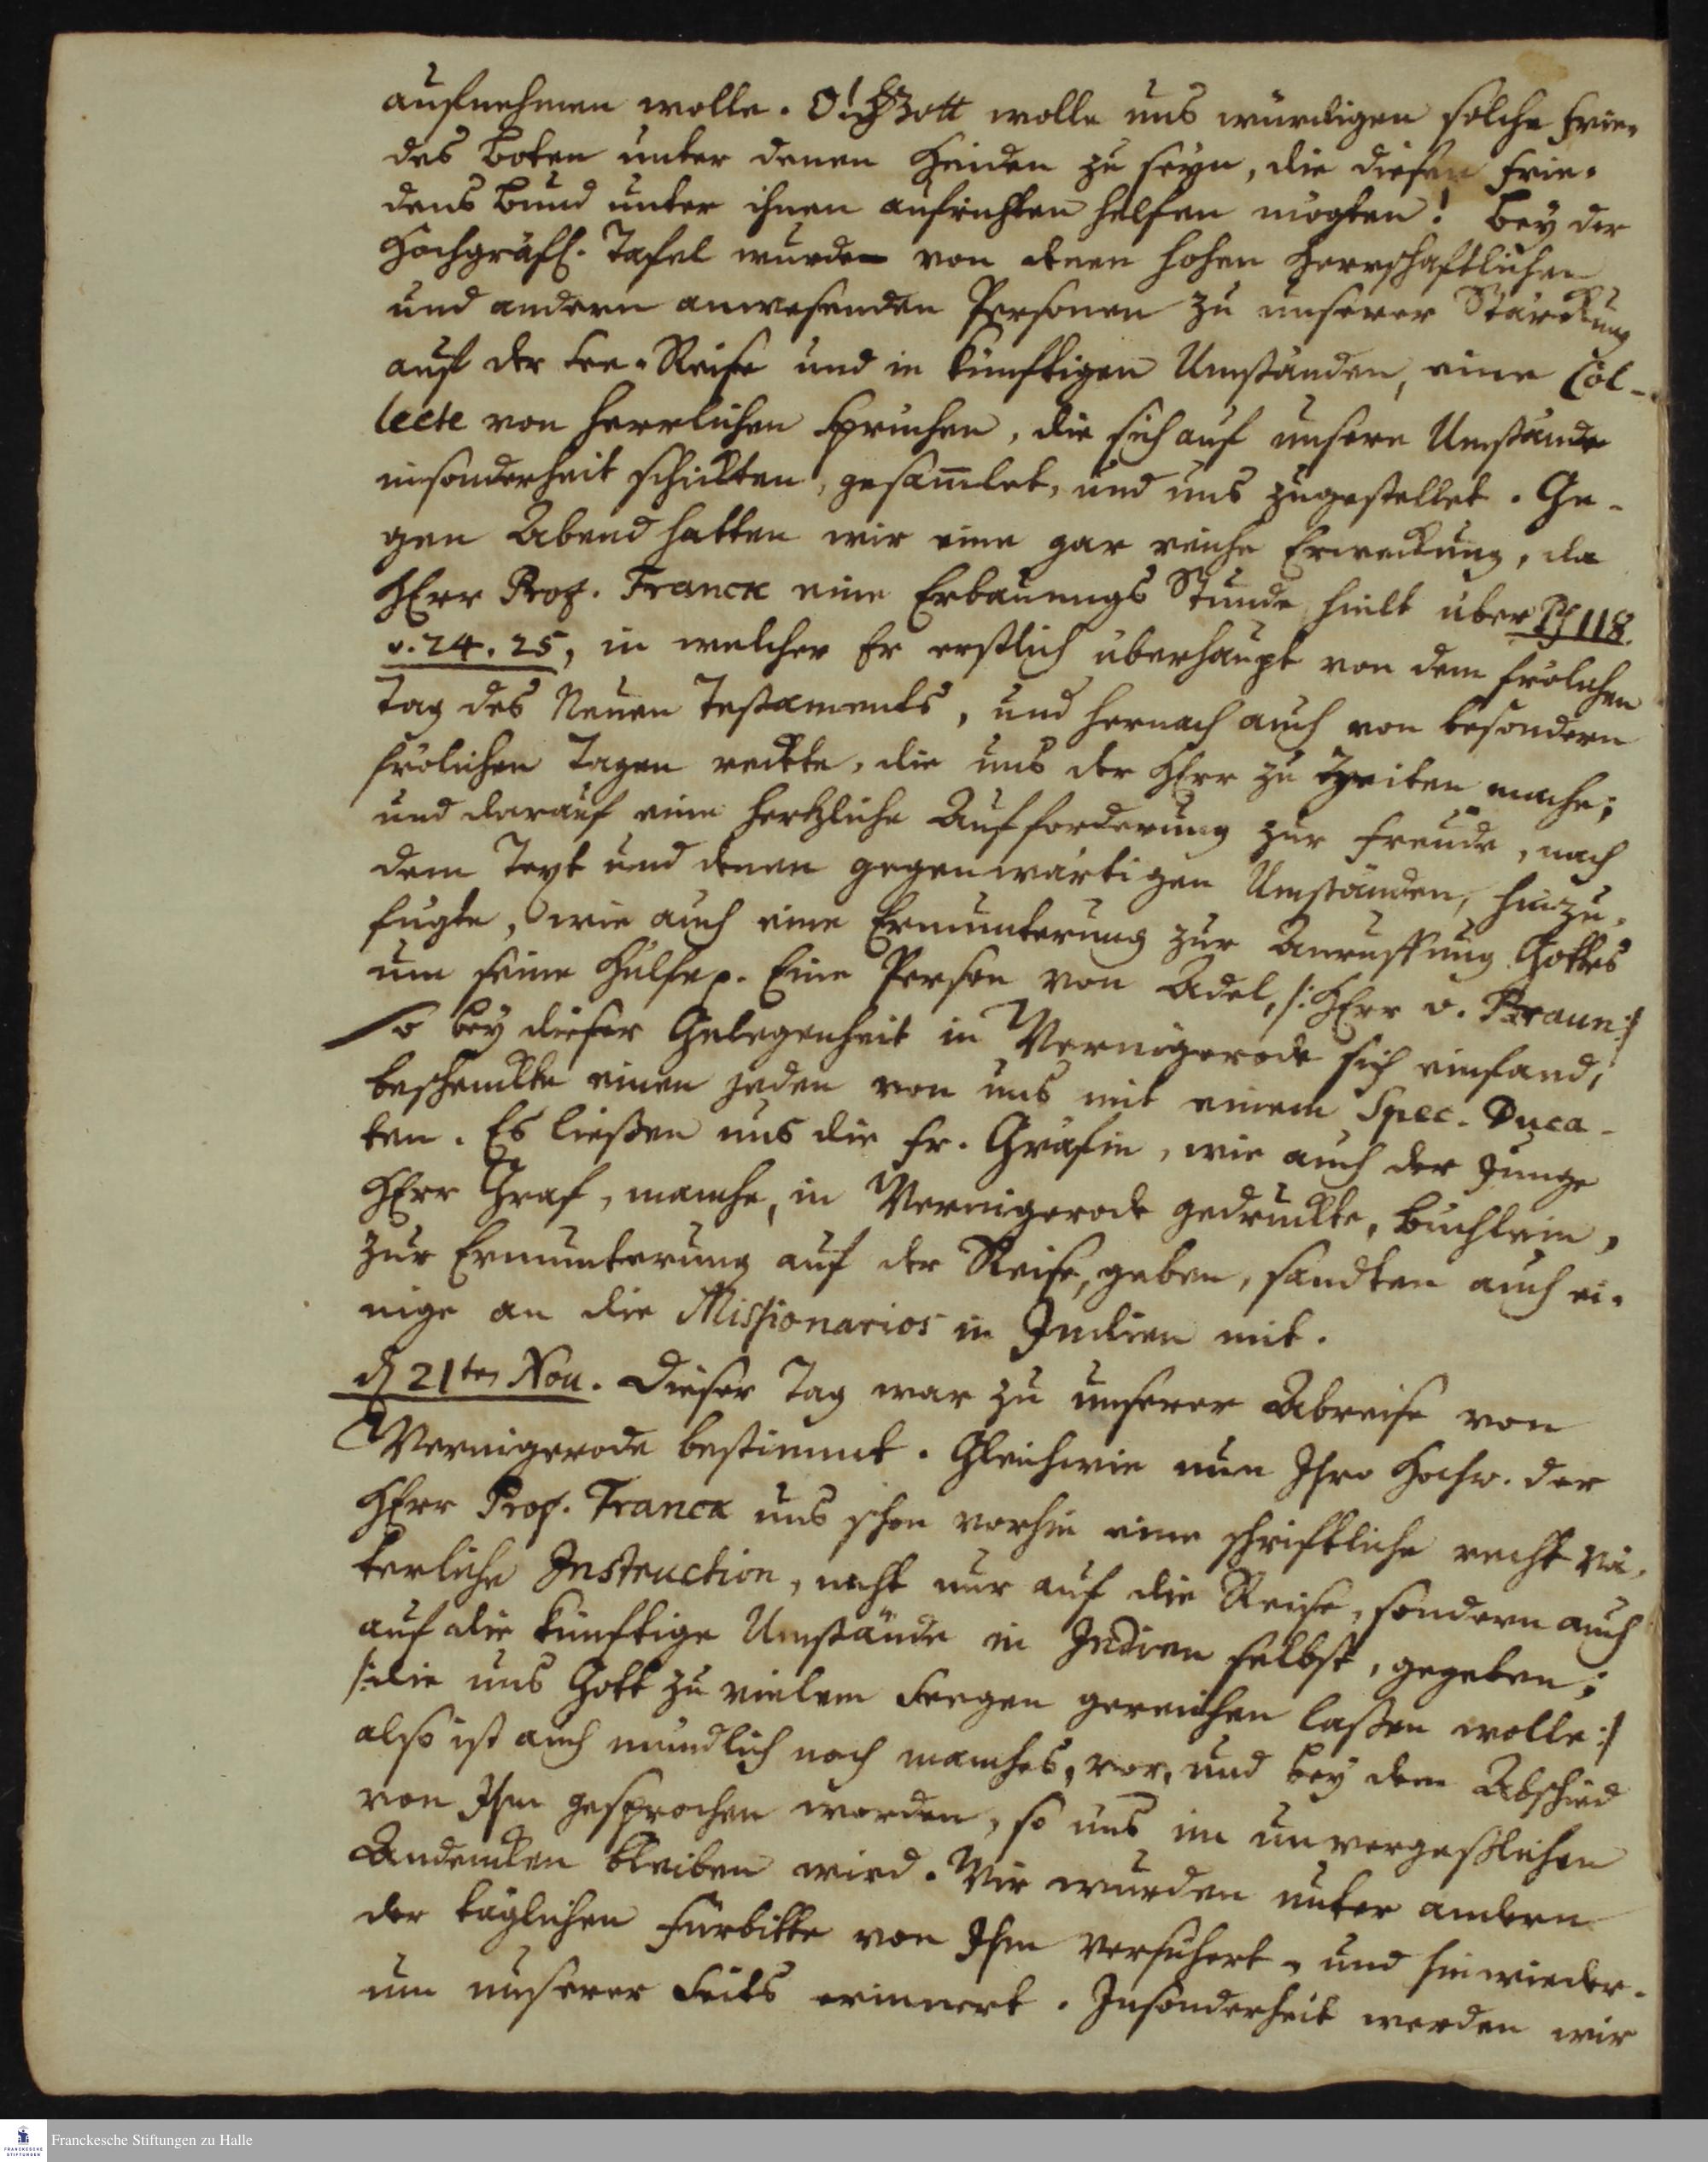 aufnehmen wolle. O! Gott wolle uns würdigen solche Frie-
des Boten unter denen Heiden zu seyn, die diesen Frie-
dens Bund unter ihnen aufrichten helfen mögten! Bey der
Hochgräfl. Tafel wurde von denen hohen Herrschaftlichen
und andern anwesenden Personen zu unserer Stärckung
auf der See-Reise und in künftigen Umständen, eine Col-
lecte von herrlichen Sprüchen, die sich auf unsere Umstände
insonderheit schickten, gesam̅let, und uns zugestellet. Ge-
gen Abend hatten wir eine gar reiche Erweckung, da
HErr Prof. Franck eine Erbauungs Stunde hielt über Ps 118.
v. 24. 25, in welcher Er erstlich überhaupt von dem frölichen
Tag des Neuen Testaments, und hernach auch von besondern
frölichen Tagen redete, die uns der HErr zu Zeiten mache;
und darauf eine hertzliche Aufforderung zur Freude, nach
dem Text und denen gegenwärtigen Umständen, hinzu-
fügte, wie auch eine Ermunterung zur Anruffung Gottes
um seine Hülfe p. Eine Person von Adel, /: HErr v. Braun :/
so bey dieser Gelegenheit in Wernigerode sich einfand,
beschenckte einen jeden von uns mit einem Spec. Duca-
ten. Es ließen uns die Fr. Gräfin, wie auch der junge
HErr Graf, manche, in Wernigerode gedruckte, Büchlein,
zur Ermunterung auf der Reise, geben, sandten auch ei-
nige an die Missionarios in Indien mit.
d 21ten Nov. Dieser Tag war zu unserer Abreise von
Wernigerode bestimmt. Gleichwie nun Ihro Hochw. der
HErr Prof. Franck uns schon vorhin eine schriftliche recht vä-
terliche Instruction, nicht nur auf die Reise, sondern auch
auf die künftige Umstände in Indien selbst, gegeben;
/: die uns Gott zu vielem Seegen gereichen laßen wolle :/
also ist auch mündlich noch manches, vor, und bey dem Abschied
von Ihm gesprochen worden, so uns im unvergeßlichen
Andencken bleiben wird. Wir wurden unter andern
der täglichen Fürbitte von Ihm versichert, und hinwieder-
um unserer Seits erinnert. Insonderheit werden wir
Franckesche Stiftungen zu Halle